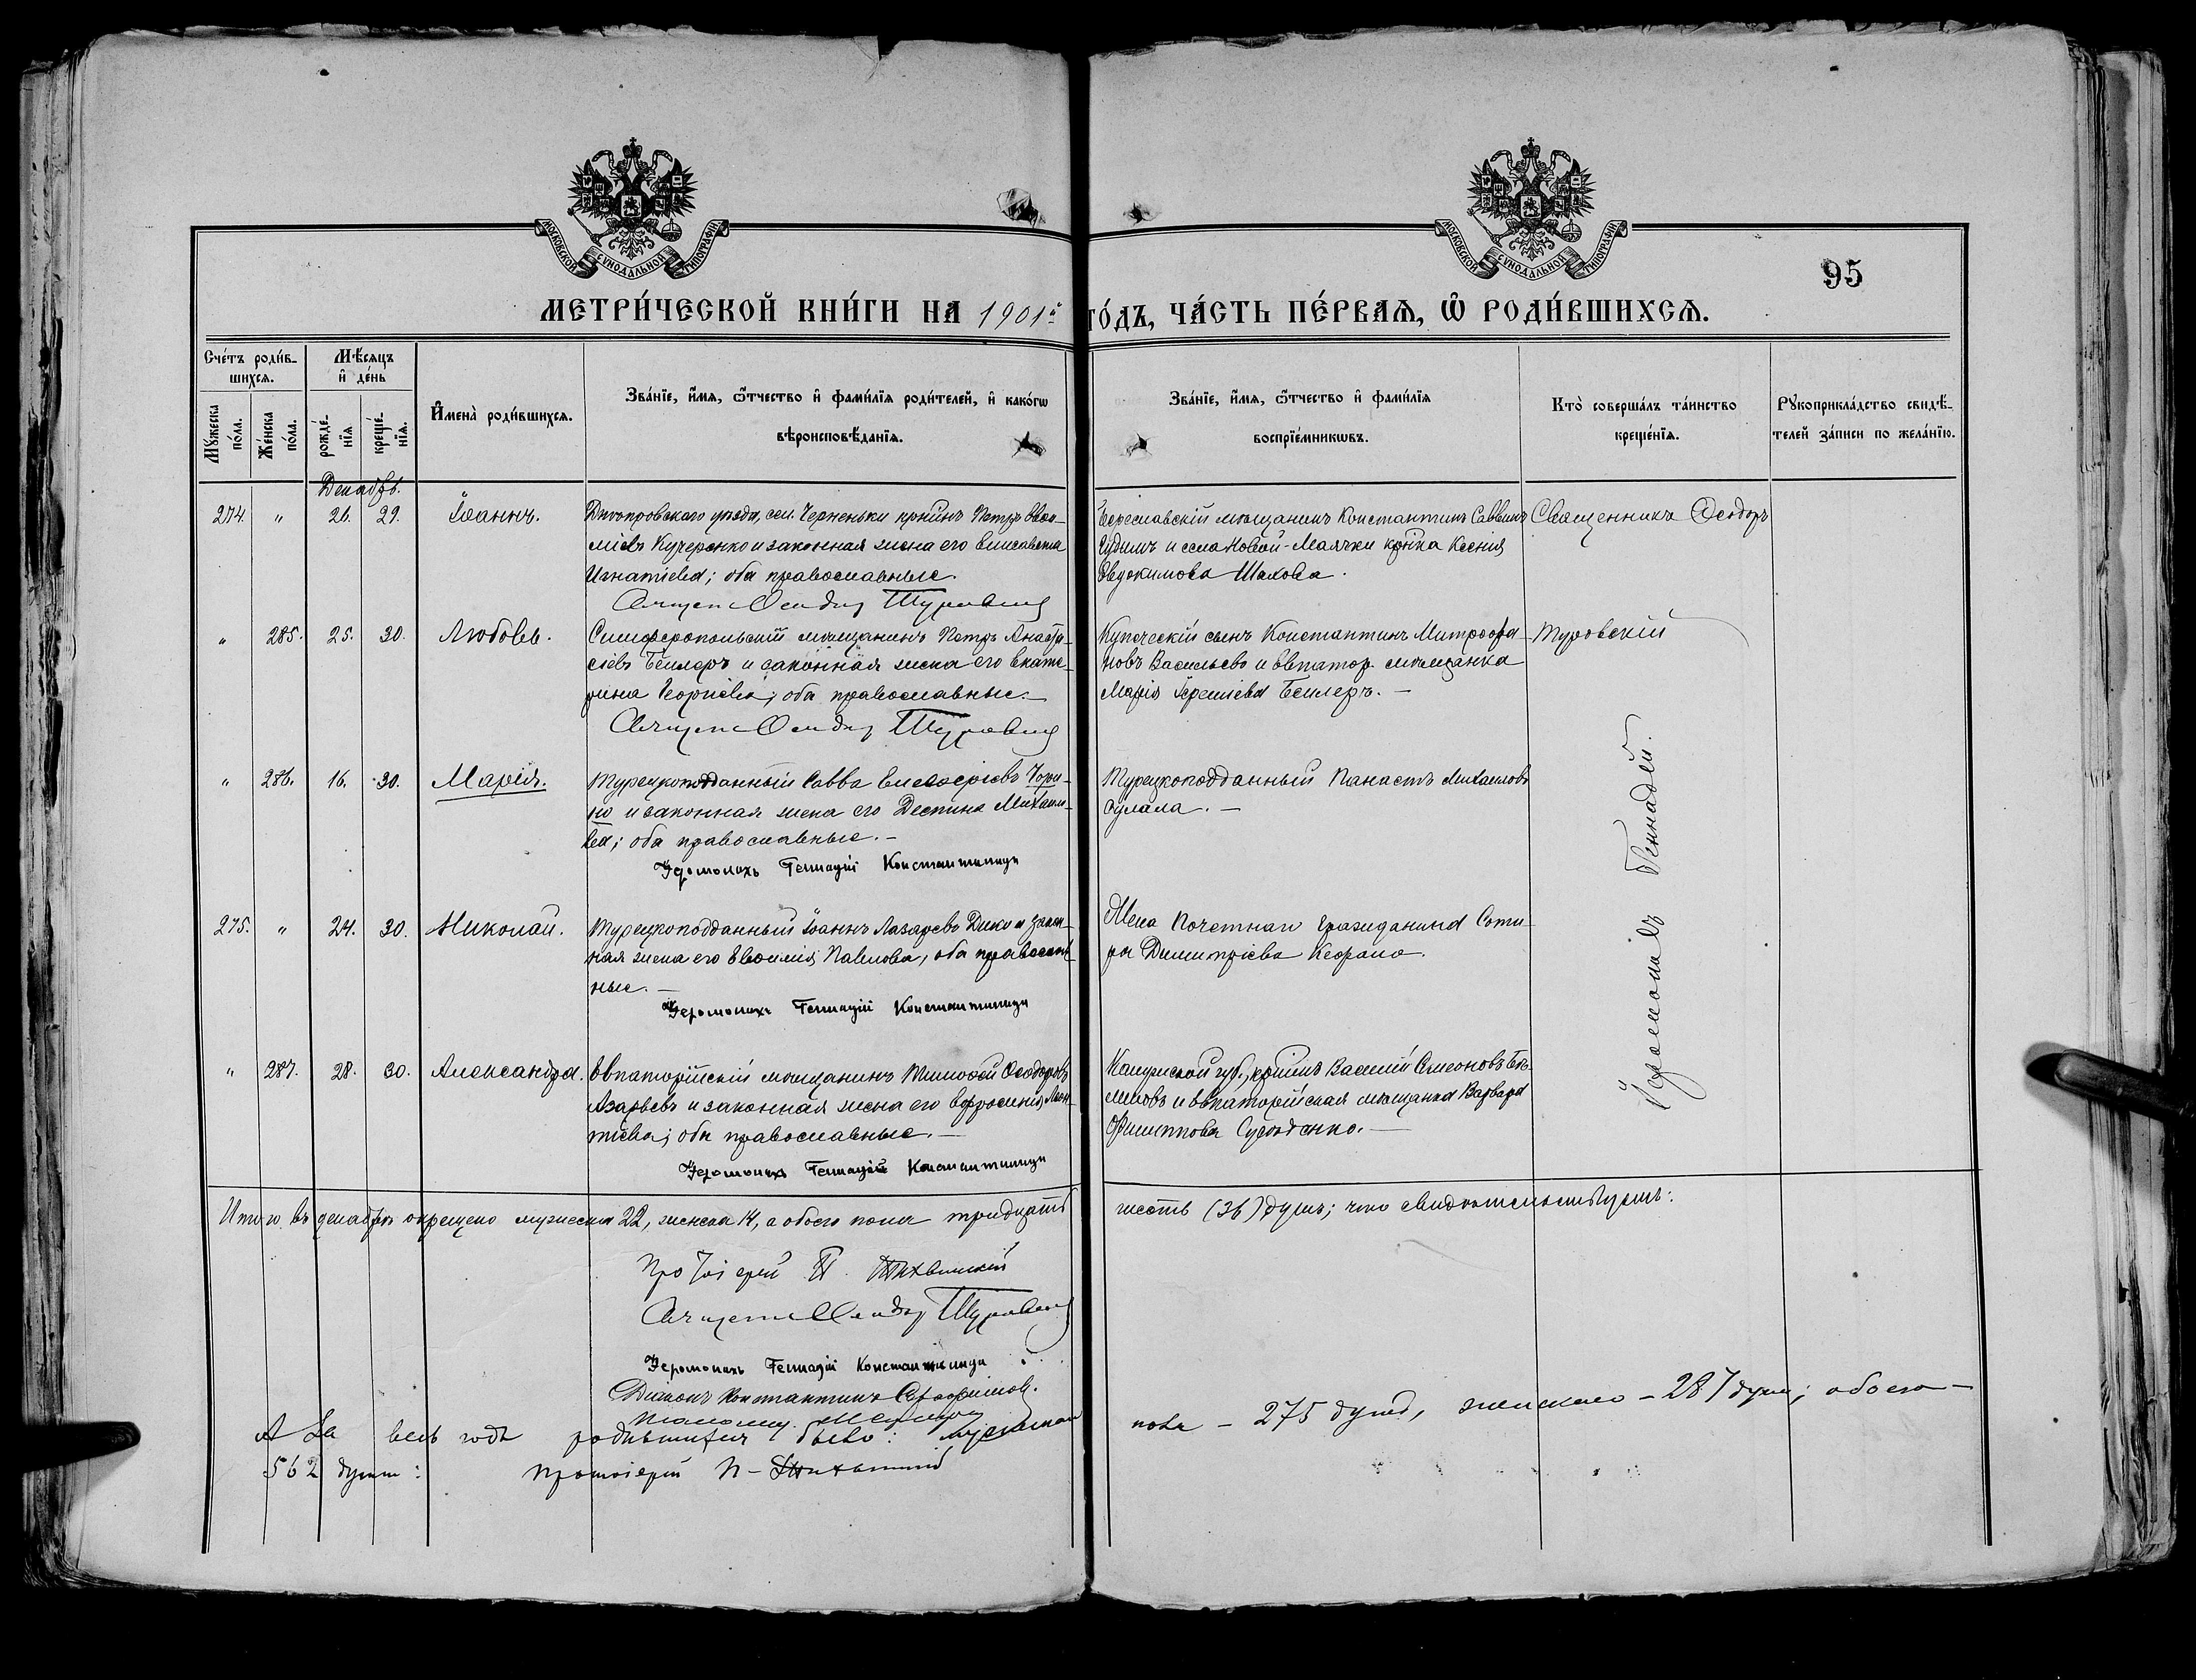 МОСКОВСКОЙ СУНОДАЛЬНОЙ ТИПОГРАФІИ
МОСКОВСКОЙ СУНОДАЛЬНОЙ ТИПОГРАФІИ
95
МЕТРИ́ЧЕСКОЙ КНИ́ГИ НА 1901й ГО́ДЪ, ЧА́СТЬ ПЕ́РВАѦ, Ѡ҆ РОДИ́ВШИХСѦ.
Сче́тъ роди́в-
шихсѧ.
Мꙋжеска по́ла.
Же́нска по́ла.
Мѣ́сѧцъ
и҆ де́нь
рожде́-
нїѧ
креще́-
нїѧ.
И҆мена̀ роди́вшихсѧ.
Зва́нїе, и҆́мѧ, ѻ҆́тчество и҆ фами́лїѧ роди́телей, и҆ како́гѡ
вѣроисповѣ́данїѧ.
Зва́нїе, и҆́мѧ, ѻ҆́тчество и҆ фами́лїѧ
воспрїе́мникѡвъ.
Кто̀ соверша́лъ та́инство
креще́нїѧ.
Рꙋкоприкла́дство свидѣ́-
телей за́писи по жела́нїю.
Декабрь.
274. " 26. 29. Іоаннъ.
Днѣпровскаго уѣзда, сел. Черненьки кр-нинъ Петръ Евѳи-
міевъ Кучеренко и законная жена его Елисавета
Игнатіева; оба православные.
Священ Ѳеодоръ Туровскій
Береславскій мѣщанинъ Константинъ Саввинъ
и села Новой-Маячки кр-нка Ксенія
Евдокимова Шахова.
Священникъ Ѳеодоръ
Туровскій
" 285. 25. 30. Любовь.
Симферопольскій мѣщанинъ Петръ Анаста-
сіевъ Бейлеръ и законная жена его Екате-
рина Георгіева; оба православные.
Священ Ѳеодоръ Туровскій
Купеческій сынъ Константинъ Митрофа-
новъ Васильевъ и Евпатор. мѣщанка
Марія Бейлеръ. —
" 286. 16. 30. Марія.
Турецкоподданный Савва Елевѳеріевъ Чори-
но и законная жена его Деспина Михаило-
ва; оба православные. —
Іеромонахъ Геннадій Константиниди
Турецкоподданный Панастъ Михаиловъ
Сулала. —
Іеромонахъ Геннадій.
275. " 24. 30. Николай.
Турецкоподданный Іоаннъ Лазаревъ Дико и закон-
ная жена его Евѳимія Павлова, оба православ-
ные. —
Іеромонахъ Геннадій Константиниди
Жена Почетнаго Гражданина Соти-
ра Димитріева Кефала.
" 287. 28. 30. Александра.
Евпаторійскій мѣщанинъ Тимоѳей Ѳеодоровъ
Азарьевъ и законная жена его Ефросинія Леон-
тіева; оба православные. —
Іеромонахъ Геннадій Константиниди
Калужской губ., кр-нинъ Василій Симеоновъ
и Евпаторійская мѣщанка Варвара
Филиппова —
Итого въ декабрѣ окрещено мужеска 22, женска 14, а обоего пола тридцать
шесть (36) душъ; что свидѣтельствуемъ:
Протоіерей П. Тихвинскій
Священ Ѳеодоръ Туровскій
Іеромонахъ Геннадій Константиниди
Діаконъ Константинъ
Псаломщ.
А За весь годъ родившихся было: мужескаго
пола — 275 душъ, женскаго — 287 душъ; обоего —
562 душъ:
Протоіерей П. Тихвинскій